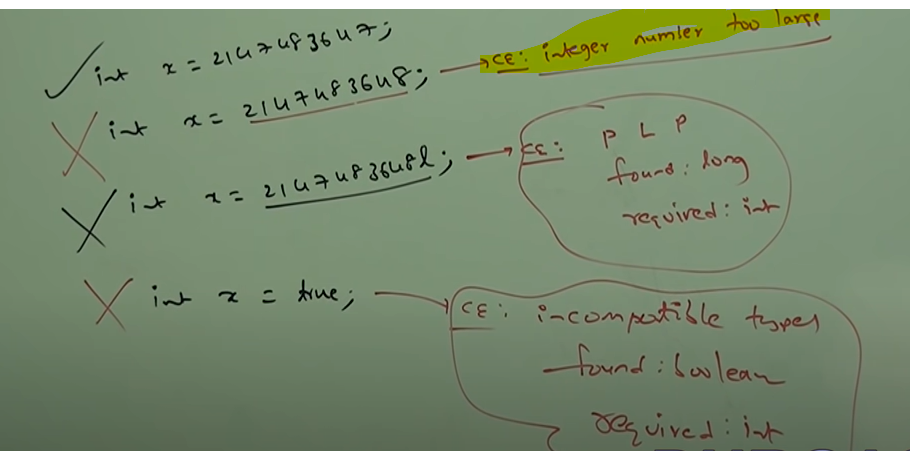 int x = 2147483647;
int x = 2147483648; → CE: integer number too large
int x = 2147483648l; → CE: P L P
found: long
required: int
int x = true; → CE: incompatible types
found: boolean
required: int